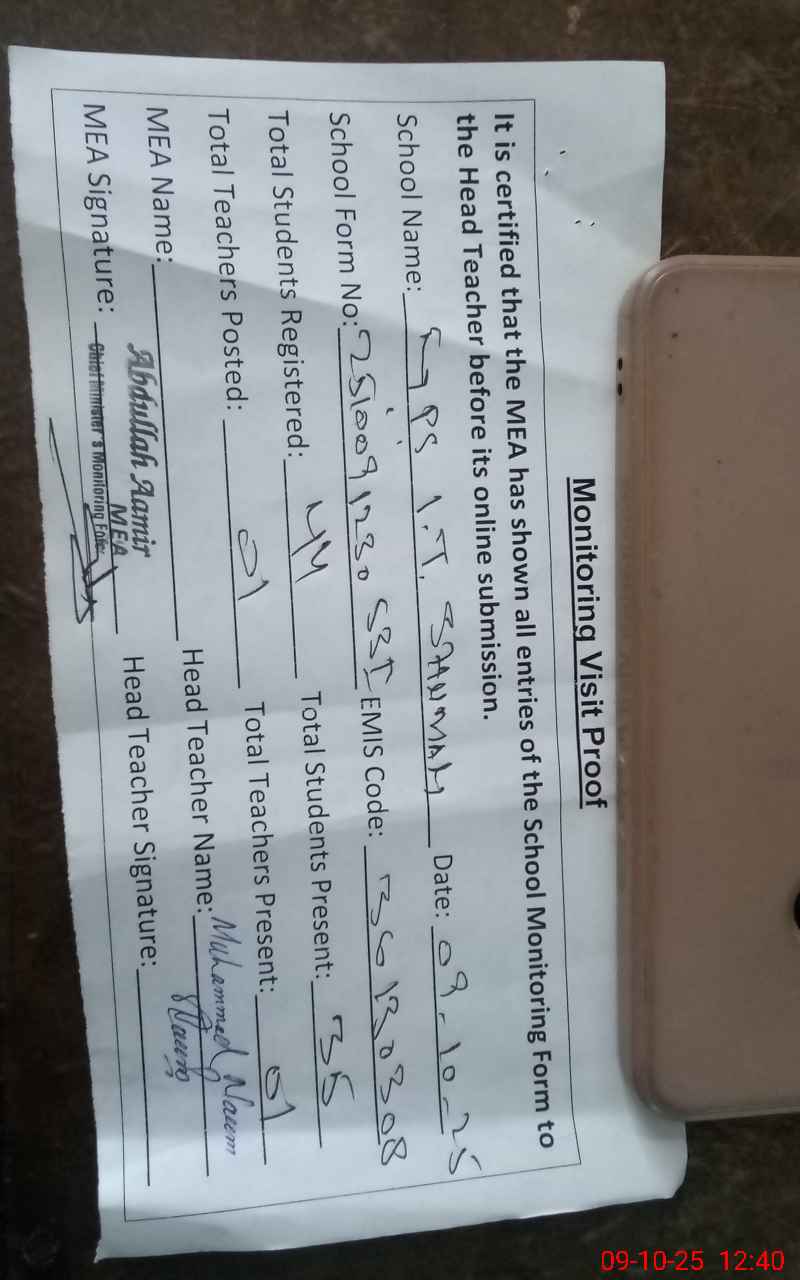 Monitoring Visit Proof
It is certified that the MEA has shown all entries of the School Monitoring Form to
the Head Teacher before its online submission.
School Name: PS Date: 09-10-25
School Form No: EMIS Code: 36130308
Total Students Registered: 44 Total Students Present: 35
Total Teachers Posted: 01 Total Teachers Present: 01
MEA Name: Abdullah Aamir Head Teacher Name: Muhammed Naeem
MEA
MEA Signature: Chief Minister's Monitoring Head Teacher Signature:
09-10-25 12:40